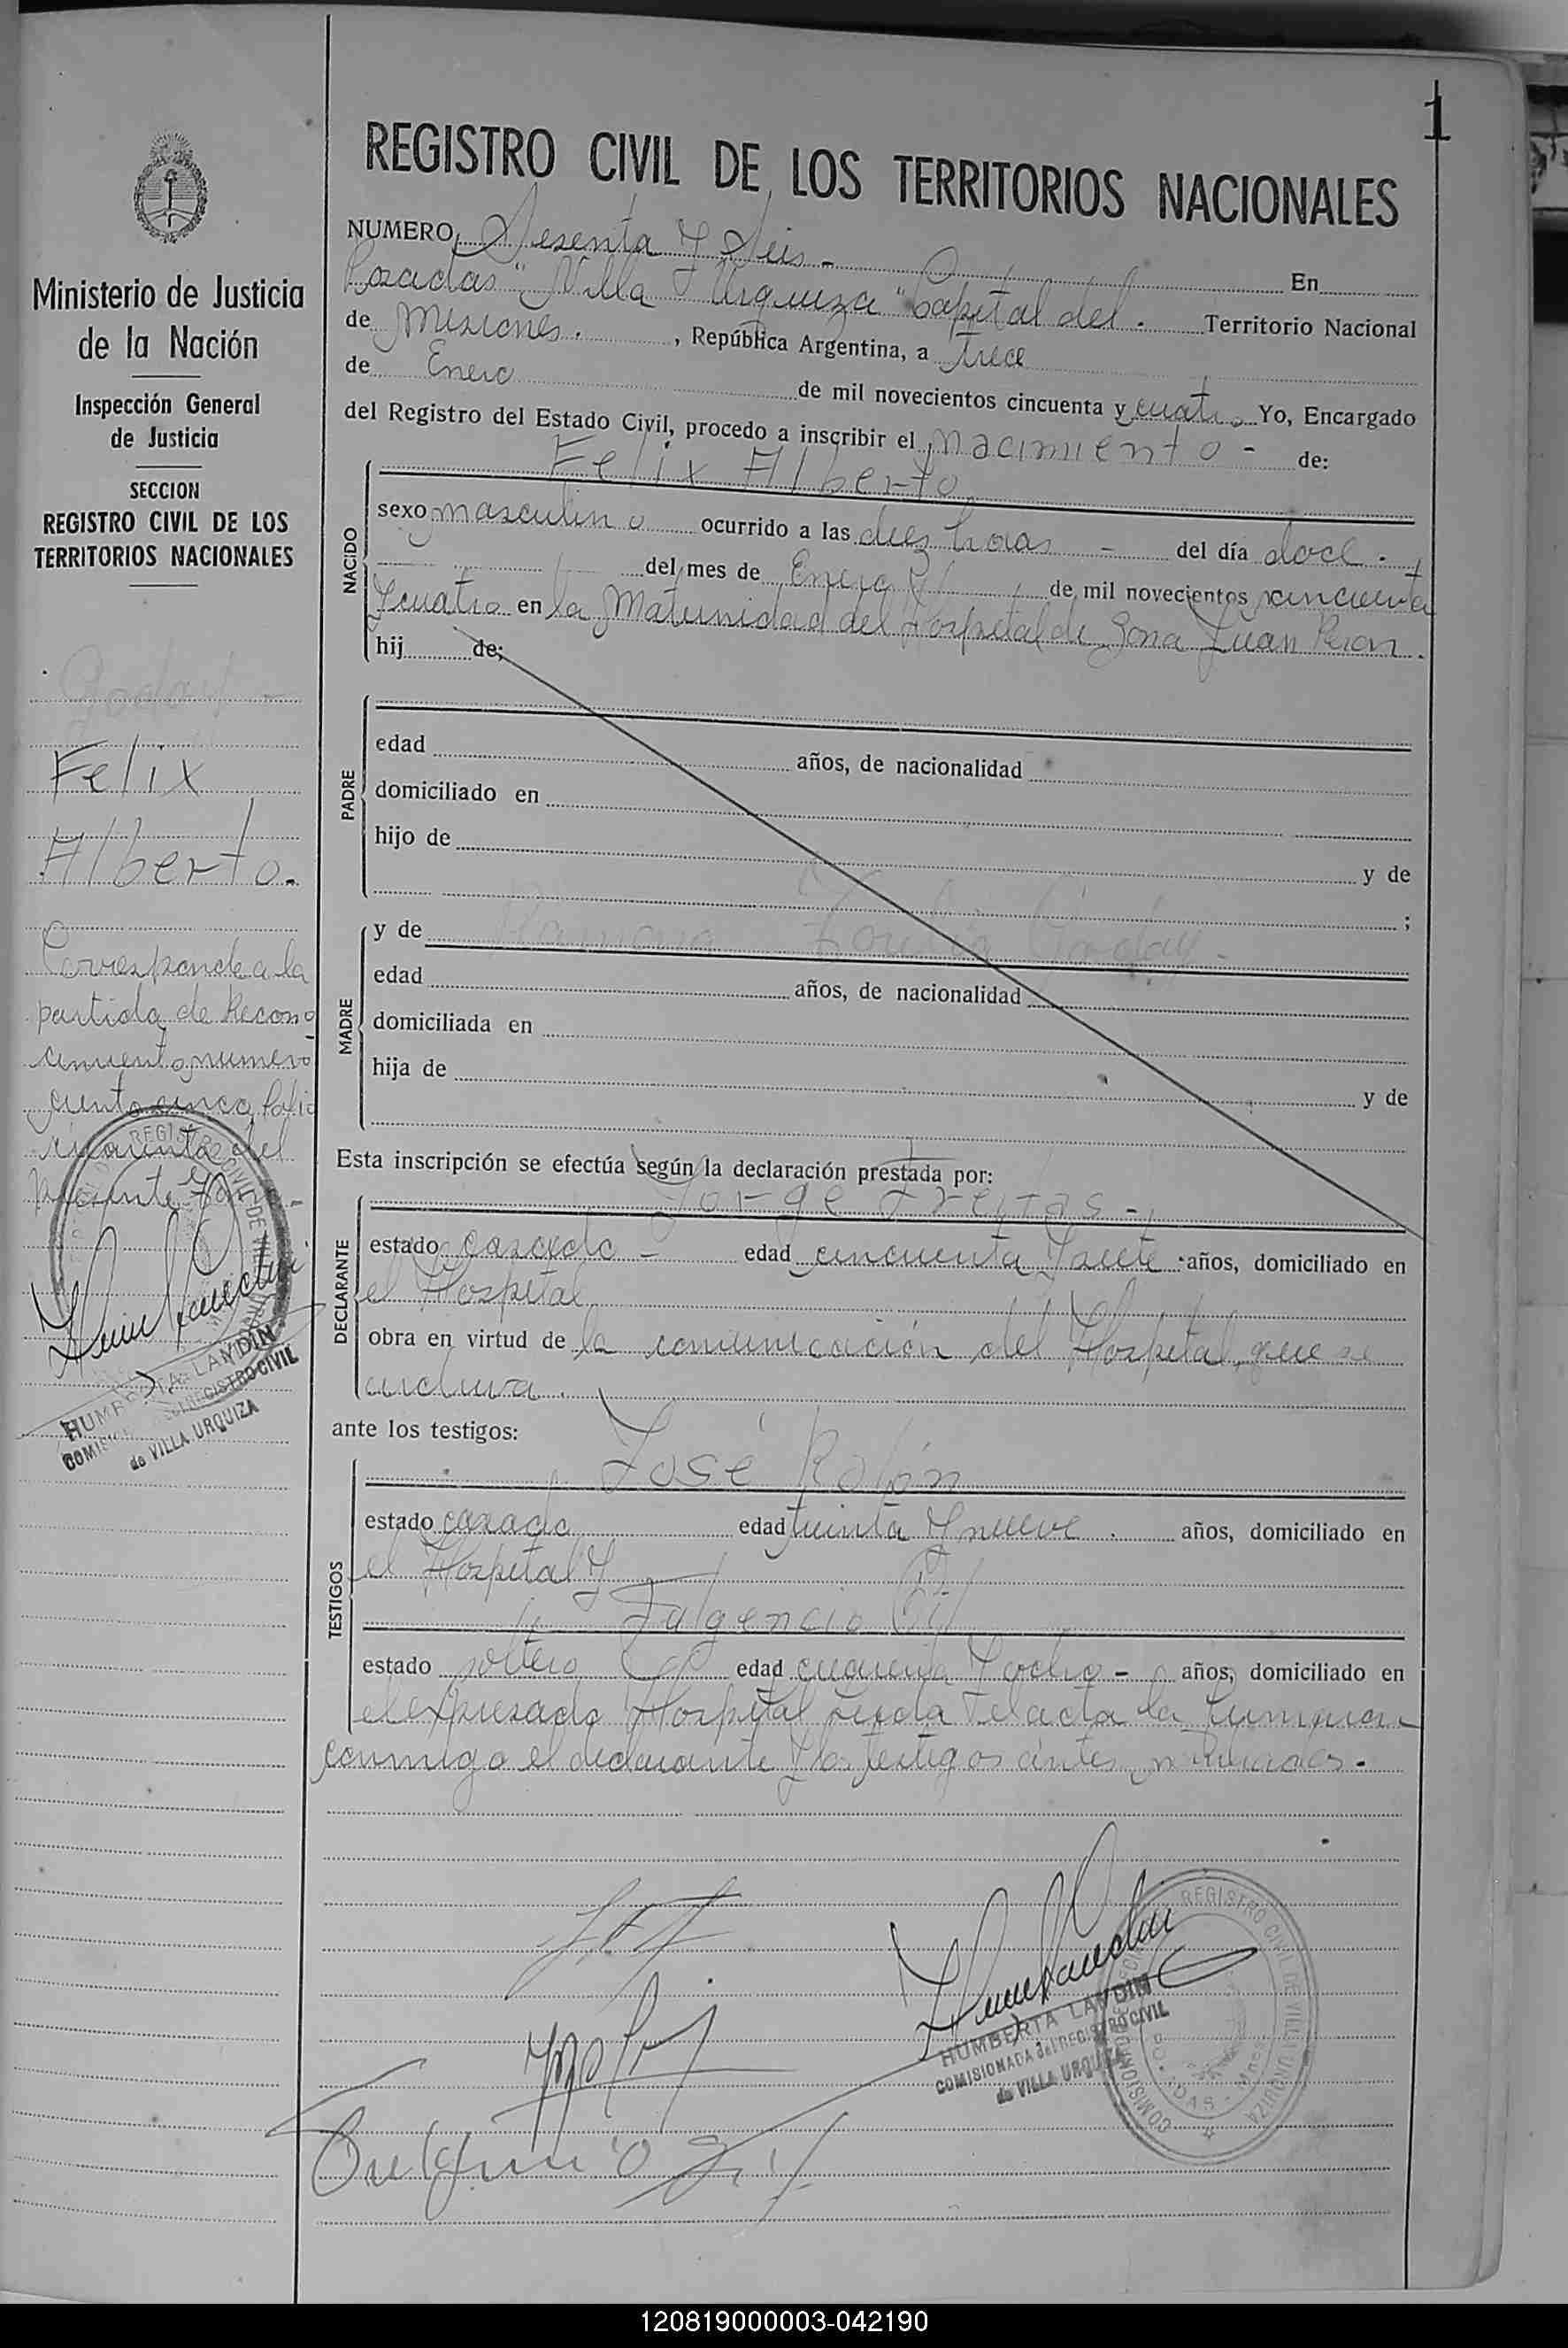 1
REGISTRO CIVIL DE LOS TERRITORIOS NACIONALES
Ministerio de Justicia
de la Nación
Inspección General
de Justicia
SECCION
REGISTRO CIVIL DE LOS
TERRITORIOS NACIONALES
Goday -
Felix
Alberto.
Corresponde a la
partida de Recono
cimiento numero
ciento cinco folio
cincuenta del
presente
HUMBERTA LANDIN
COMISIONADA del REGISTRO CIVIL
de VILLA URQUIZA
NUMERO Sesenta y Seis - En
Posadas "Villa Urquiza" Capital del. Territorio Nacional
de Misiones. , República Argentina, a trece
de Enero de mil novecientos cincuenta y cuatro Yo, Encargado
del Registro del Estado Civil, procedo a inscribir el nacimiento - de:
Felix Alberto
NACIDO
sexo masculino ocurrido a las diez horas - del día doce -
del mes de Enero de mil novecientos cincuenta
y cuatro en la Maternidad del Hospital de Zona Juan Peron.
hij de;
PADRE
edad años, de nacionalidad
domiciliado en
hijo de y de
;
MADRE
y de Ramona Goday -
edad años, de nacionalidad
domiciliada en
hija de y de
Esta inscripción se efectúa según la declaración prestada por:
Jorge Freytas -
DECLARANTE
estado casado - edad cincuenta y siete - años, domiciliado en
el Hospital
obra en virtud de la comunicación del Hospital, que se
archiva.
ante los testigos:
José Rolón
TESTIGOS
estado casado edad treinta y nueve . años, domiciliado en
el Hospital y
Fulgencio Gil
estado soltero edad cuarenta y ocho - años, domiciliado en
el expresado Hospital Leida el acta la firmaron
conmigo el declarante y los testigos antes
HUMBERTA LANDIN
COMISIONADA del REGISTRO CIVIL
de VILLA URQUIZA
REGISTRO CIVIL DE VILLA URQUIZA
120819000003-042190